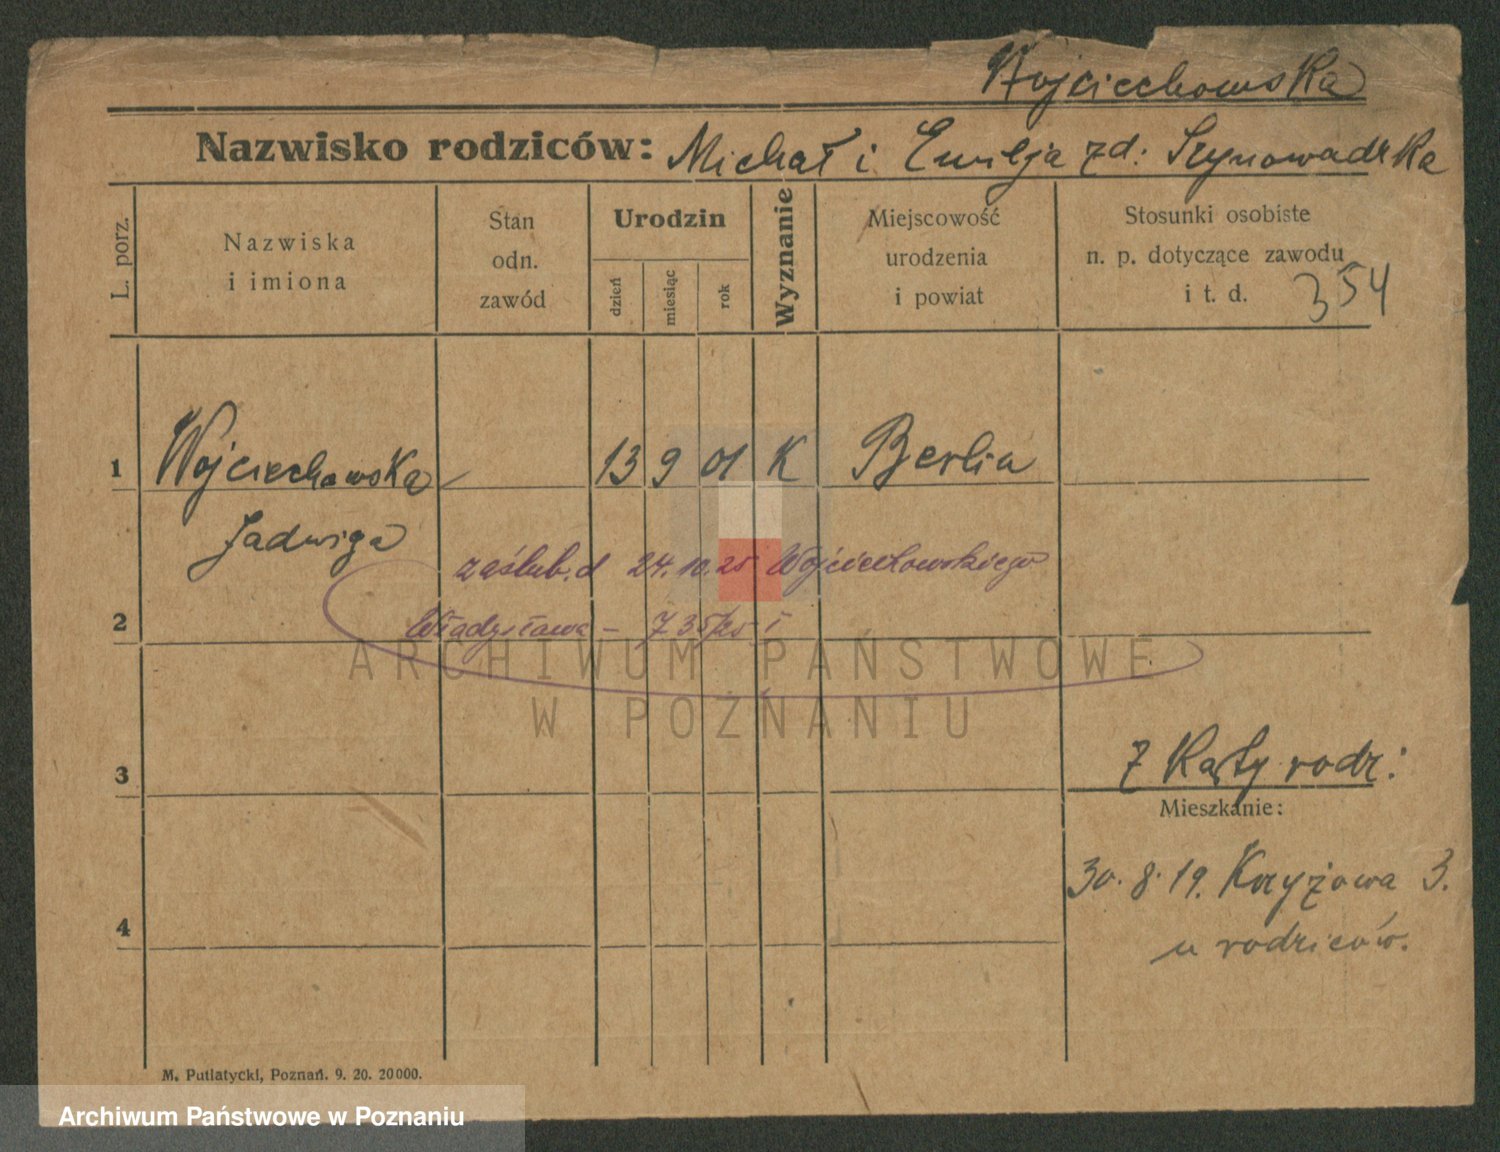 Wojciechowska
Nazwisko rodziców: Michał i Emilja zd:
L. porz.
Nazwiska
i imiona
Stan
odn.
zawód
Urodzin
dzień
miesiąc
rok
Wyznanie
Miejscowość
urodzenia
i powiat
Stosunki osobiste
n. p. dotyczące zawodu
i t. d.
354
1 Wojciechowska 13 9 01 K Berlin
Jadwiga
zaślub. d 24.10.25 Wojciechowskiego
2 Władysława – 735/25 I
ARCHIWUM PAŃSTWOWE
W POZNANIU
3
z Karty rodz:
Mieszkanie:
30.8.19. Kryżowa 3.
4
u rodziców.
M. Putiatycki, Poznań. 9. 20. 20000.
Archiwum Państwowe w Poznaniu